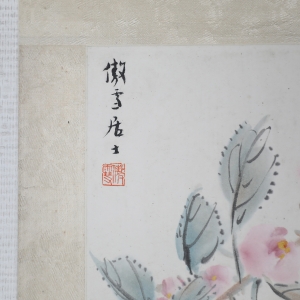 傲雪居士